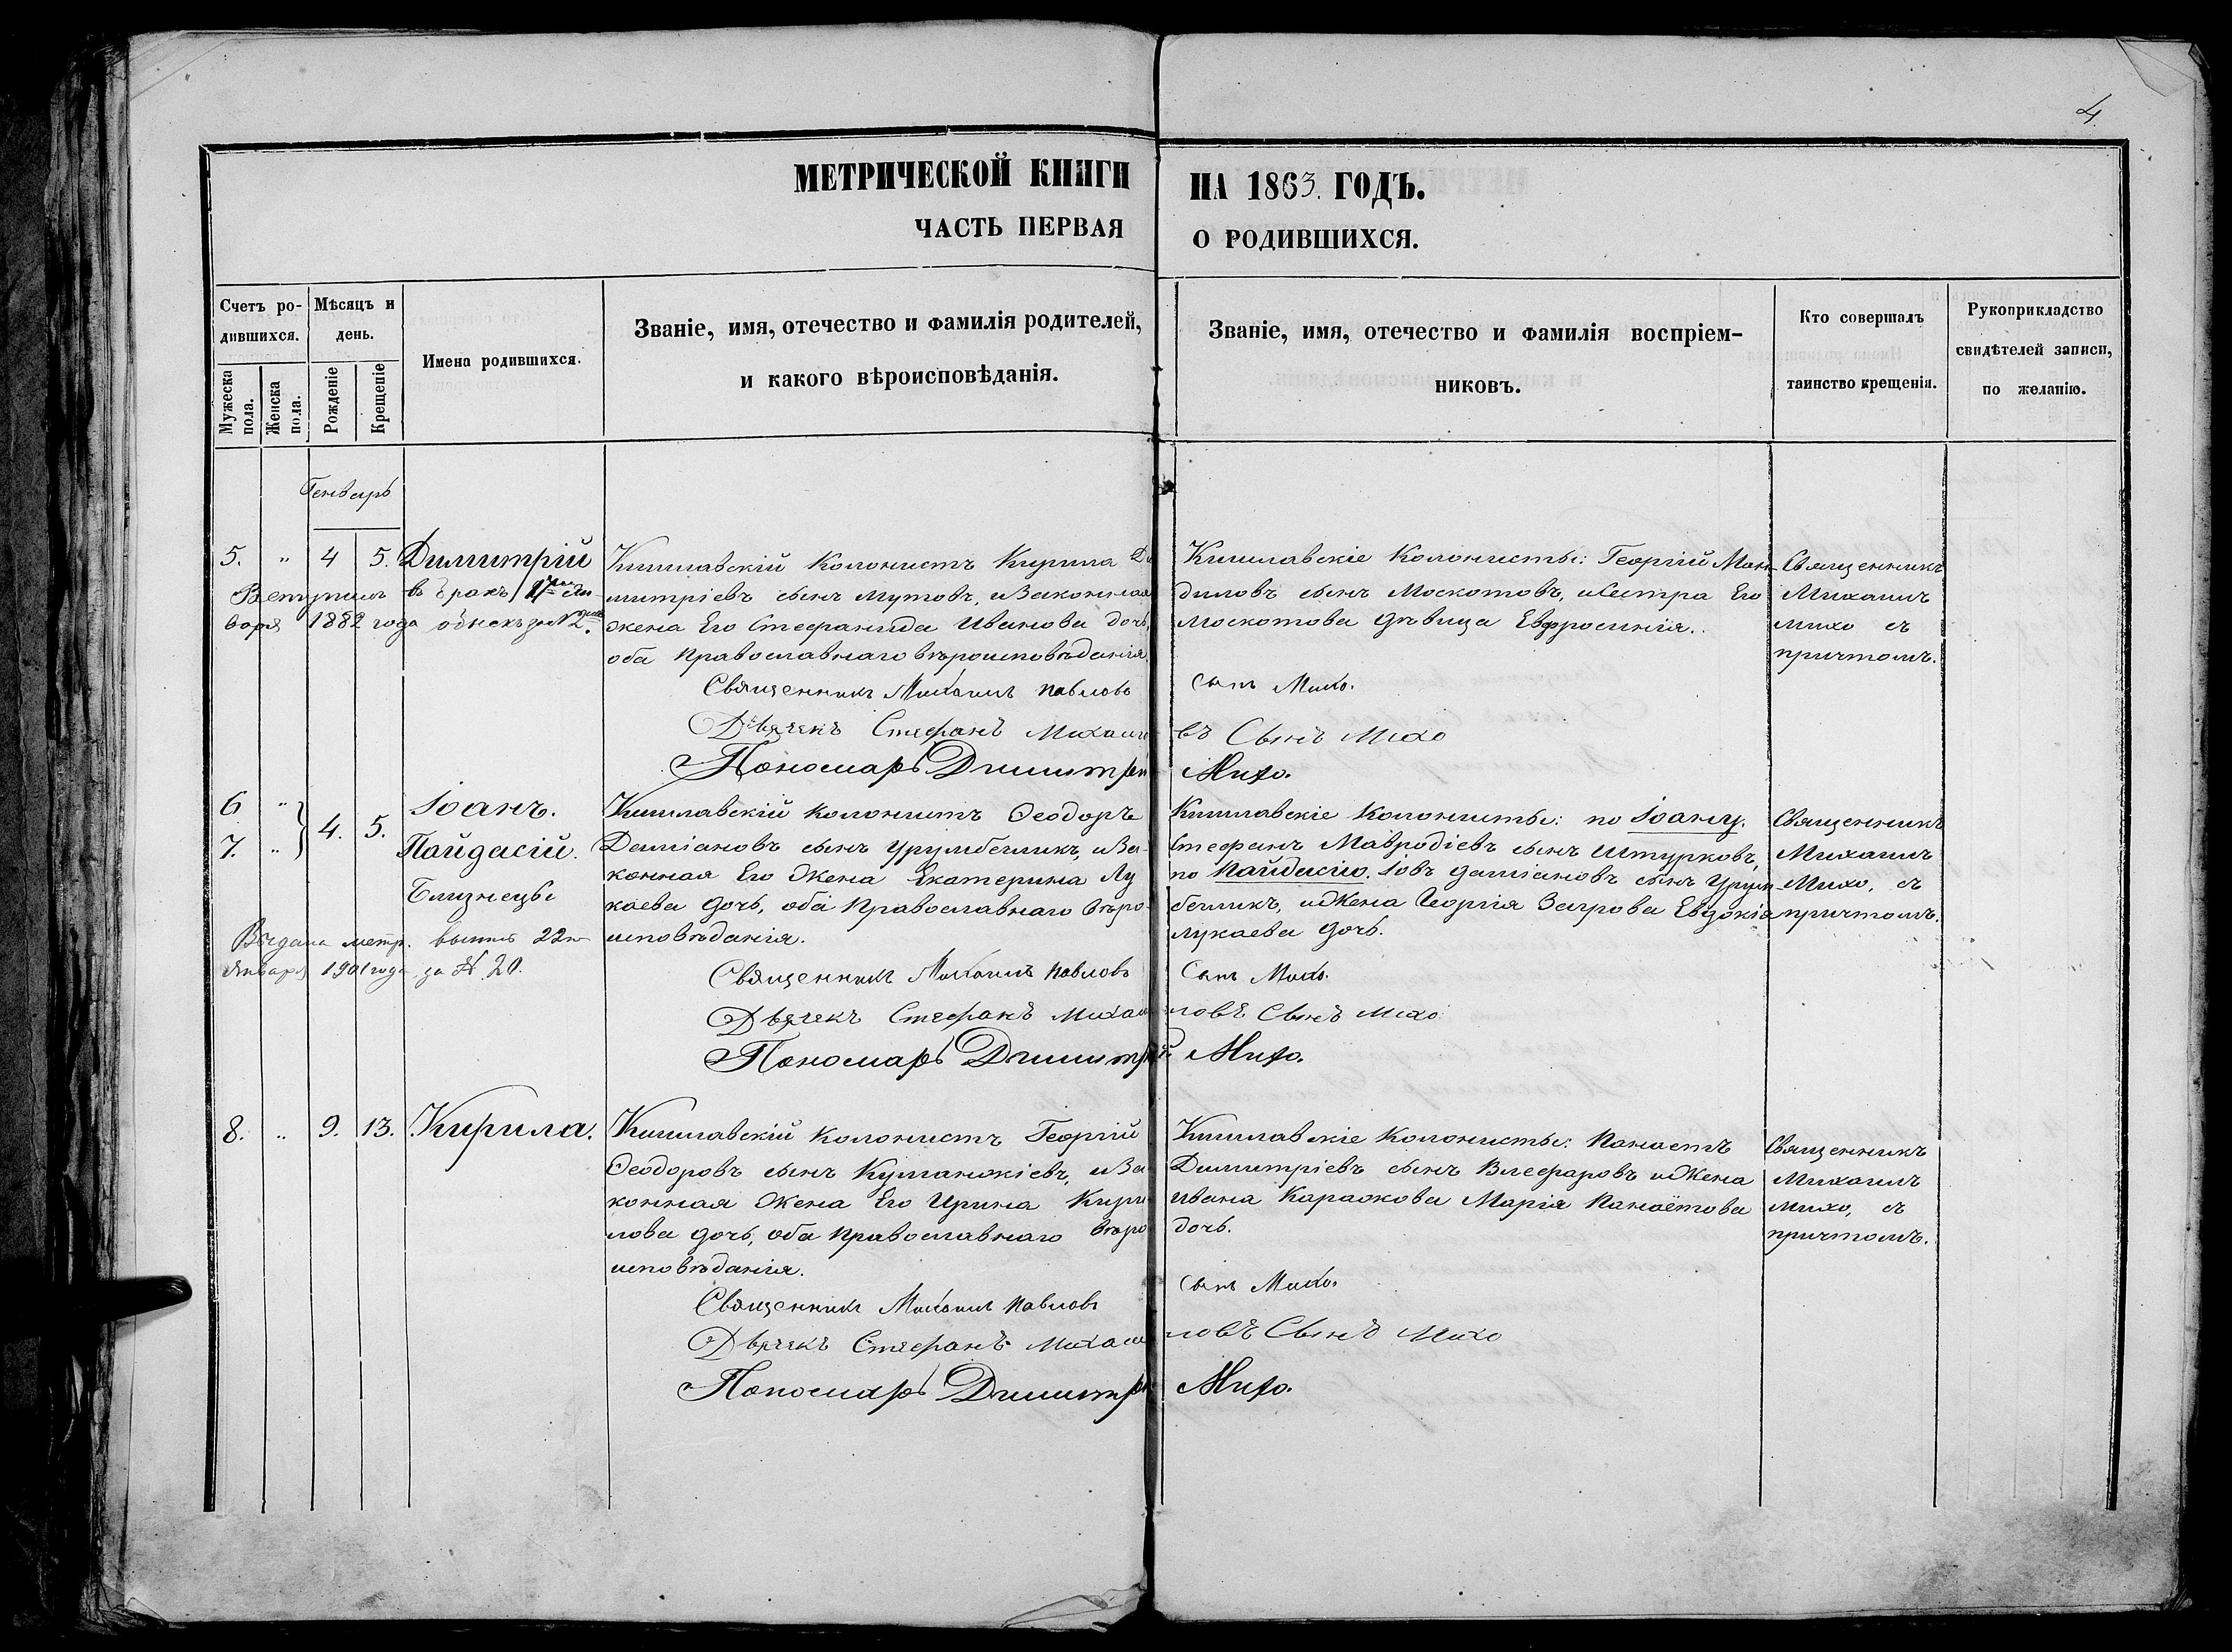 4
МЕТРИЧЕСКОЙ КНИГИ НА 1863. ГОДЪ.
ЧАСТЬ ПЕРВАЯ О РОДИВШИХСЯ.
Счетъ ро-
дившихся.
Мужеска
пола.
Женска
пола.
Мѣсяцъ и
день.
Рожденіе
Крещеніе
Имена родившихся.
Званіе, имя, отечество и фамилія родителей,
и какого вѣроисповѣданія.
Званіе, имя, отечество и фамилія воспріем-
никовъ.
Кто совершалъ
таинство крещенія.
Рукоприкладство
свидѣтелей записи,
по желанію.
Генварь
5. " 4 5. Димитрій
Вступилъ въ бракъ
варя 1882 года
Кишлавскій Колонистъ Кирила Ди
митріевъ сынъ Мутовъ, и Законная
жена Его Стефанида Иванова дочь,
оба Православнаго вѣроисповѣданія.
Священникъ Михаилъ Павловъ сынъ Михо.
Дьячекъ Стефанъ Михаи въ Сынъ Михо
Пономарь Димитрій Михо.
Кишлавскіе Колонисты: Георгій Ман
диловъ сынъ Москотовъ, и Сестра Его
Москотова дѣвица Евфросинія.
Священникъ
Михаилъ
Михо съ
причтомъ.
6 "
7. "
4. 5.
Іоанъ.
Пайдасій.
Близнецы
Выдана метр. выпись 22
Января 1901 года за № 20.
Кишлавскій Колонистъ Ѳеодоръ
Даміановъ сынъ Урумбегликъ, и За-
конная Его Жена Екатерина Лу
каева дочь, оба Православнаго вѣро-
исповѣданія.
Священникъ Михаилъ Павловъ Сынъ Михо.
Дьячекъ Стефанъ Михаи ловъ Сынъ Михо
Пономарь Димитрій Михо.
Кишлавскіе Колонисты: по Іоану.
Стефанъ Мавродіевъ сынъ Штурковъ,
по Пайдасію. Іовъ Даміановъ сынъ Урум
бегликъ, и Жена Георгія Загрова Евдокія
Лукаева дочь.
Священникъ
Михаилъ
Михо, съ
причтомъ.
8. " 9. 13. Кирила.
Кишлавскій Колонистъ Георгій
Ѳеодоровъ сынъ Куманжіевъ, и За
конная Жена Его Ирина Кири
лова дочь, оба Православнаго вѣро
исповѣданія.
Священникъ Михаилъ Павловъ сынъ Михо.
Дьячекъ Стефанъ Михаи ловъ Сынъ Михо
Пономарь Димитрій Михо.
Кишлавскіе Колонисты: Панаетъ
Димитріевъ сынъ Влефаровъ и Жена
Ивана Караджова Марія Панаётова
дочь.
Священникъ
Михаилъ
Михо, съ
причтомъ.